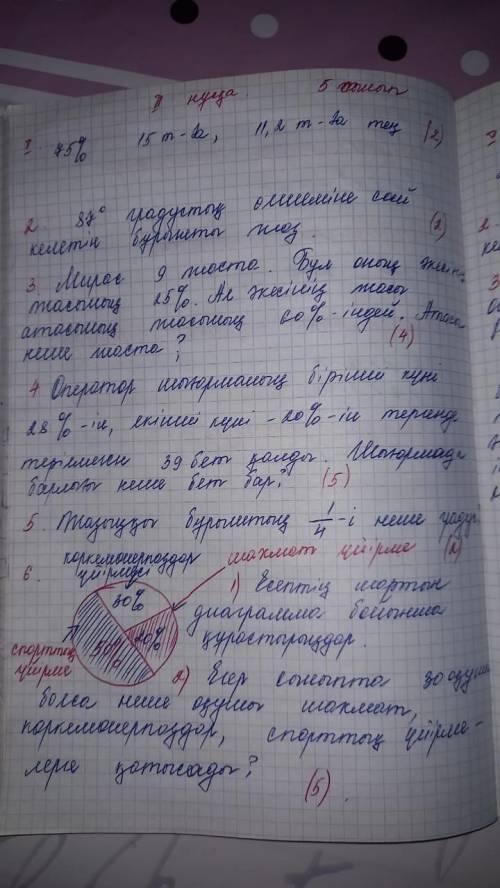 II нұсқа 5 сынып
1. 75% 15 т-ға, 11,2 т-ға тең (2)
2. 87° градустық өлшеміне сай
келетін бұрышты жаз. (2)
3. Мирас 9 жаста. Бұл оның әкесінің
жасының 25%. Ал әкесінің жасы
атасының жасының 60%-індей. Атасы
неше жаста? (4)
4 Оператор шығарманың бірінші күні
28%-ін, екінші күні - 20%-ін терген
терілмеген 39 бет қалды. Шығармада
барлығы неше бет бар? (5)
5. Жазыңқы бұрыштың 1/4-і неше градус
6. көркемөнерпаздар үйірмесі
шахмат үйірме (2)
30%
20%
50%
спорттық үйірме
1) Есептің шартын
диаграмма бойынша
құрастырыңдар.
2) Егер сыныпта 30 оқушы
болса неше оқушы шахмат,
көркемөнерпаздар, спорттық үйірме-
лерге қатысады?
(5).